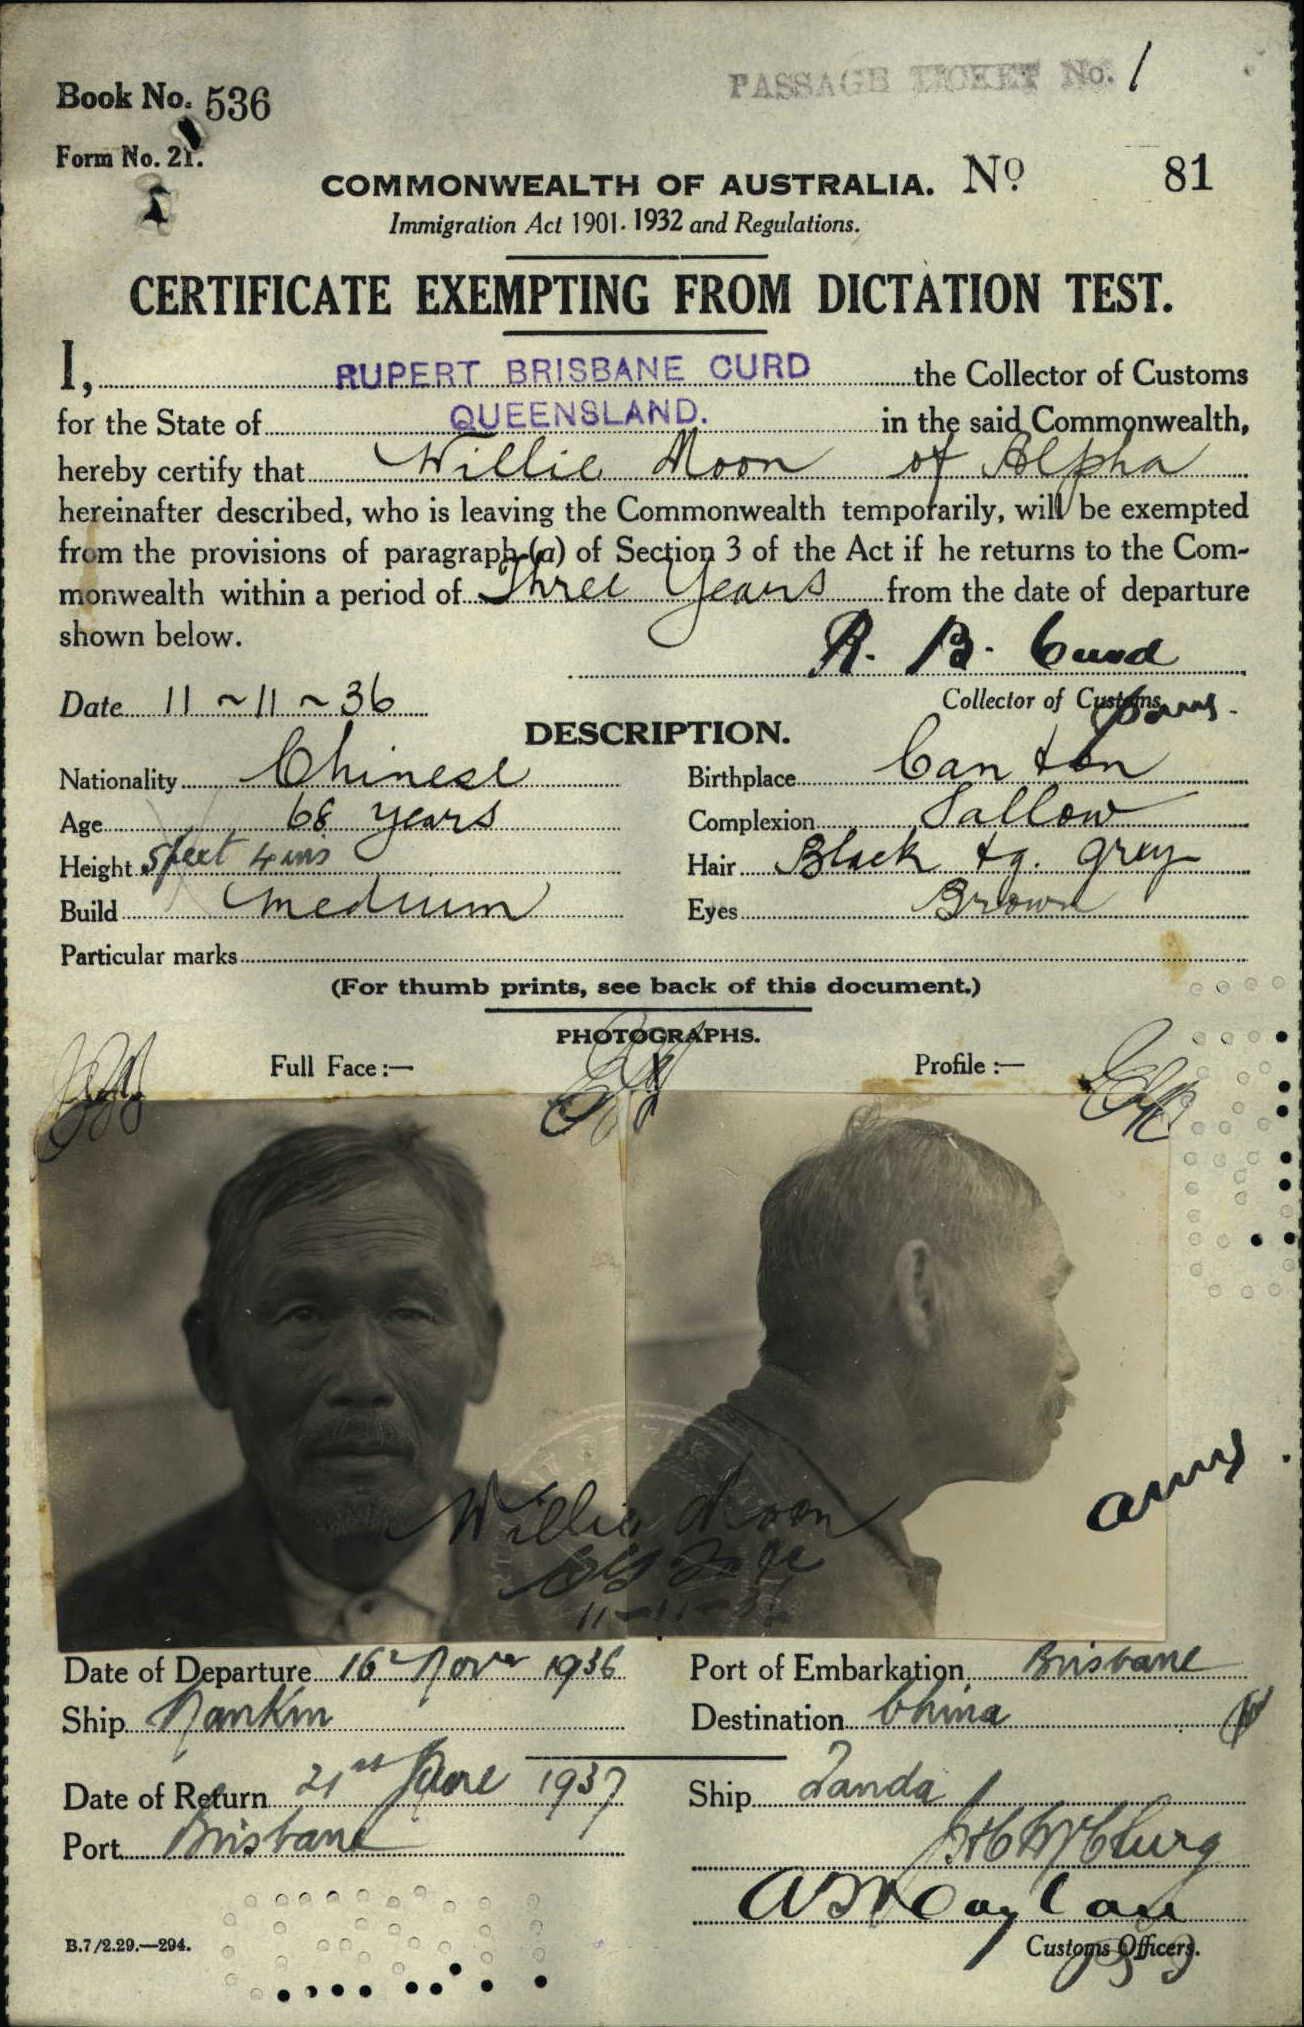 PASSAGE TICKET No. 1
Book No. 536
Form No. 21.
COMMONWEALTH OF AUSTRALIA. No 81
Immigration Act 1901-1932 and Regulations.
CERTIFICATE EXEMPTING FROM DICTATION TEST.
I, RUPERT BRISBANE CURD the Collector of Customs
for the State of QUEENSLAND. in the said Commonwealth,
hereby certify that Willie Moon of Alpha
hereinafter described, who is leaving the Commonwealth temporarily, will be exempted
from the provisions of paragraph (a) of Section 3 of the Act if he returns to the Com-
monwealth within a period of Three Years from the date of departure
shown below.
R. B. Curd
Date 11~11~36 Collector of Customs
DESCRIPTION.
Nationality Chinese Birthplace Canton
Age 68 years Complexion Sallow
Height 5 feet 4 ins Hair Black tg. grey
Build medium Eyes Brown
Particular marks
(For thumb prints, see back of this document.)
PHOTOGRAPHS.
Full Face:— Profile:—
Willie Moon
11-11-36
Date of Departure 16th Novr 1936 Port of Embarkation Brisbane
Ship Nankin Destination China
Date of Return 21st June 1937 Ship Tanda
Port Brisbane
B.7/2.29.—294. Customs Officers.